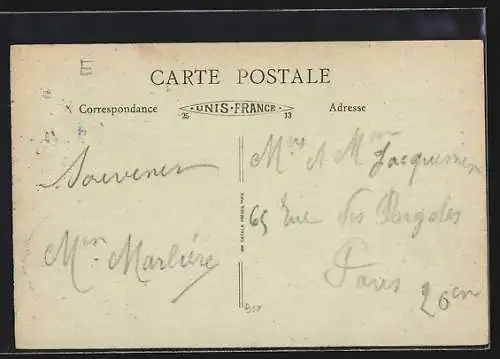 E
CARTE POSTALE
Correspondance
UNIS-FRANCE
25 13
Adresse
Souvenir
Mme Marlière
Mr et Mme Jacquemin
65 Rue des
Paris
20em